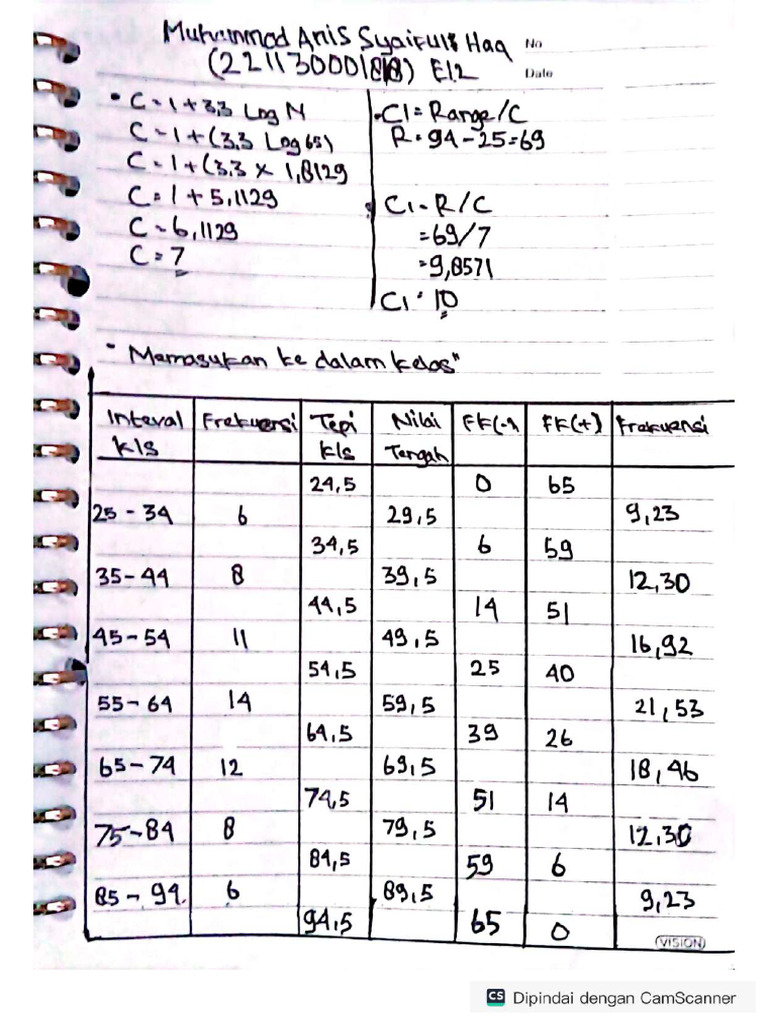 Muhammad Anis Syaiful Haq
No
(22113000188) E12
Date
• C = 1 + 3,3 Log N
C = 1 + (3,3 Log 65)
C = 1 + (3,3 x 1,8129
C = 1 + 5,1129
C = 6,1129
C = 7
• C1 = Range/C
R = 94 - 25 = 69
C1 = R/C
= 69/7
= 9,8571
C1 = 10
" Memasukan ke dalam kelas"
Inteval Kls | Frekuensi | Tepi kls | Nilai Tengah | FK(-) | FK(+) | Frekuensi
24,5 0 65
25 - 34 6 29,5 9,23
34,5 6 59
35 - 44 8 39,5 12,30
44,5 14 51
45 - 54 11 49,5 16,92
54,5 25 40
55 - 64 14 59,5 21,53
64,5 39 26
65 - 74 12 69,5 18,46
74,5 51 14
75 - 84 8 79,5 12,30
84,5 59 6
85 - 94. 6 89,5 9,23
94,5 65 0
VISION
CS Dipindai dengan CamScanner